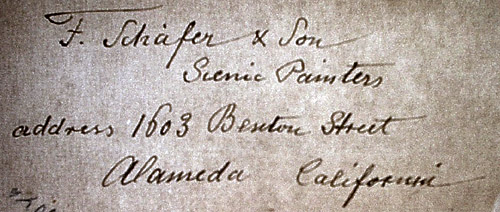 F. Schafer & Son
Scenic Painters
address 1603 Benton Street
Alameda California